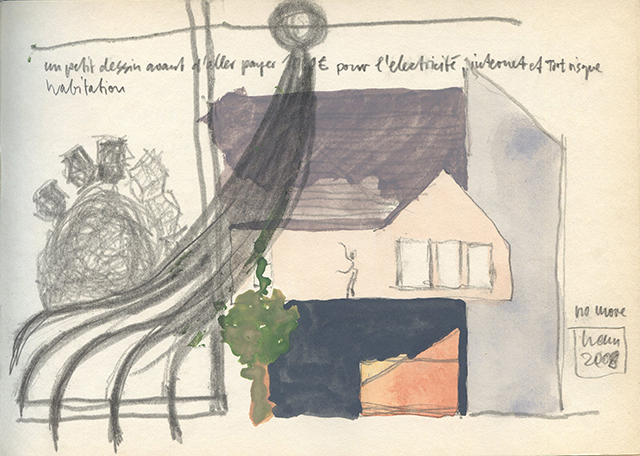 un petit dessin avant d'aller payer € pour l'électricité, internet et Tot risque
habitation
no more
2008